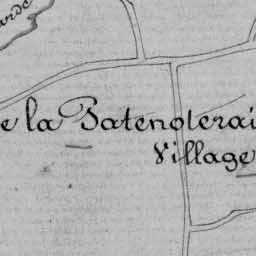 arde
e la Patenoterai
Village